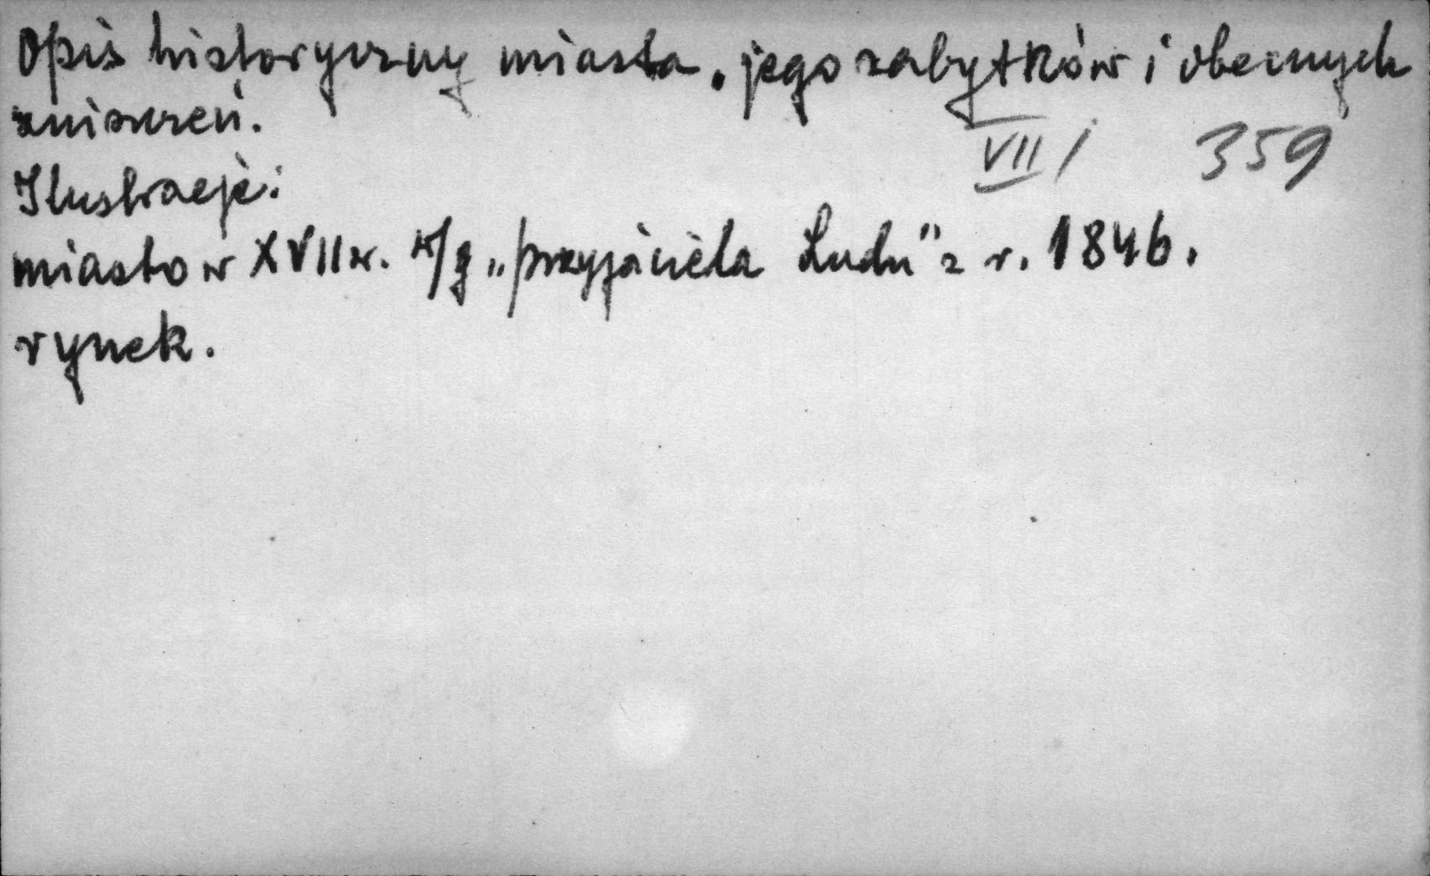 Opis historyczny miasta, jego zabytków i obecnych
zniszczeń.
VII / 359
Ilustracje:
miasto w XVII w. w/g „przyjaciela Ludu" z r. 1846.
rynek.